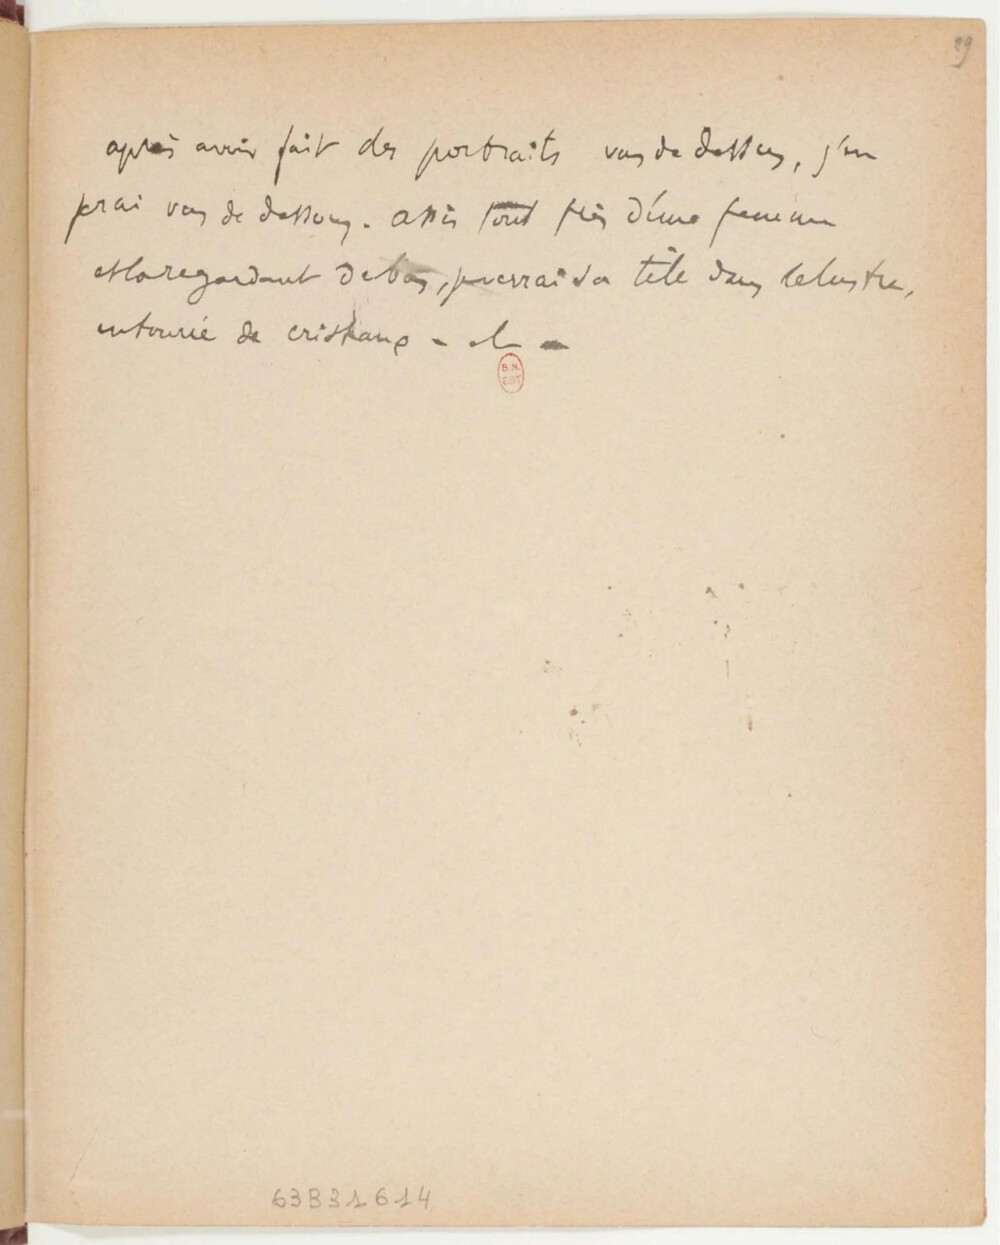 29
après avoir fait des portraits vus de dessus, j'en
ferai vus de dessous. assis tout près d'une femme
et la regardant de bas, je verrai sa tête dans le lustre,
entourée de cristaux - etc -
B.N.
EST
63B31614